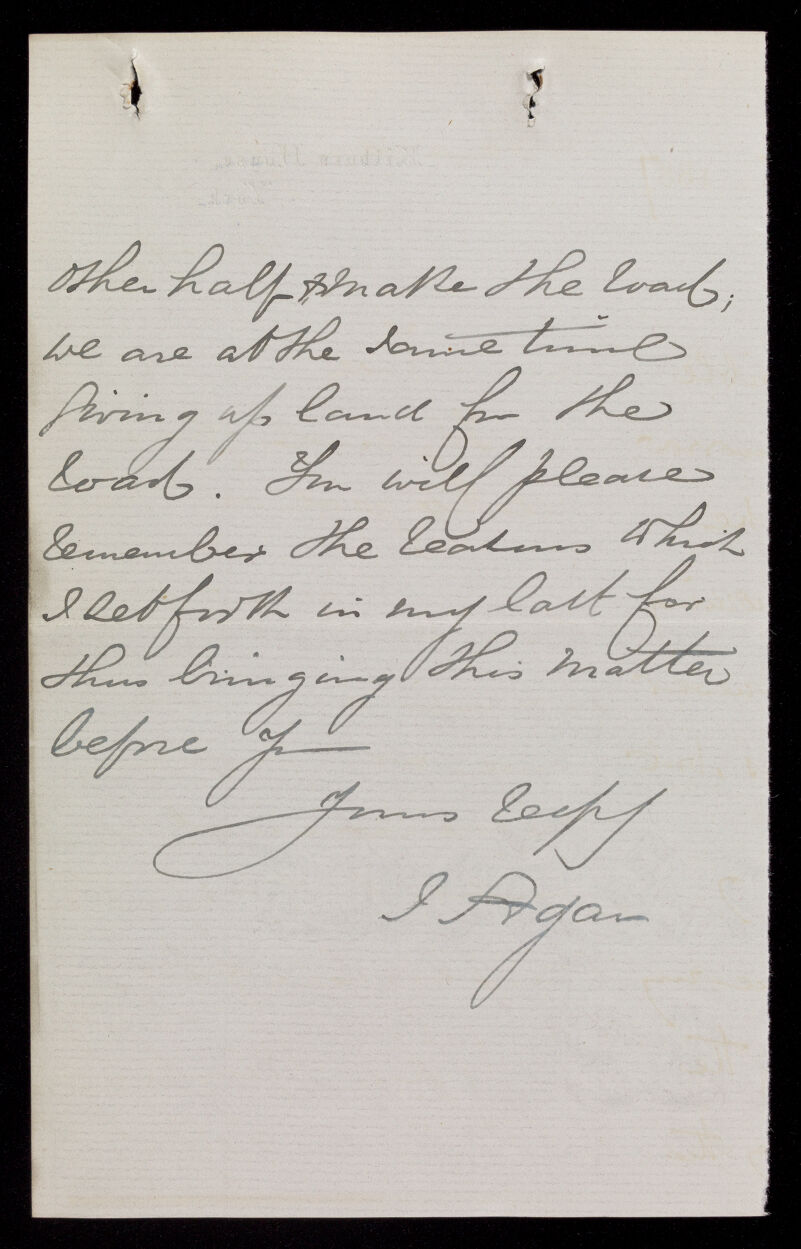 other half & make the road;
we are at the same time
giving up land for the
road. You will please
remember the reasons which
I set forth in my last for
thus bringing this matter
before you
Yours resply
I Agar